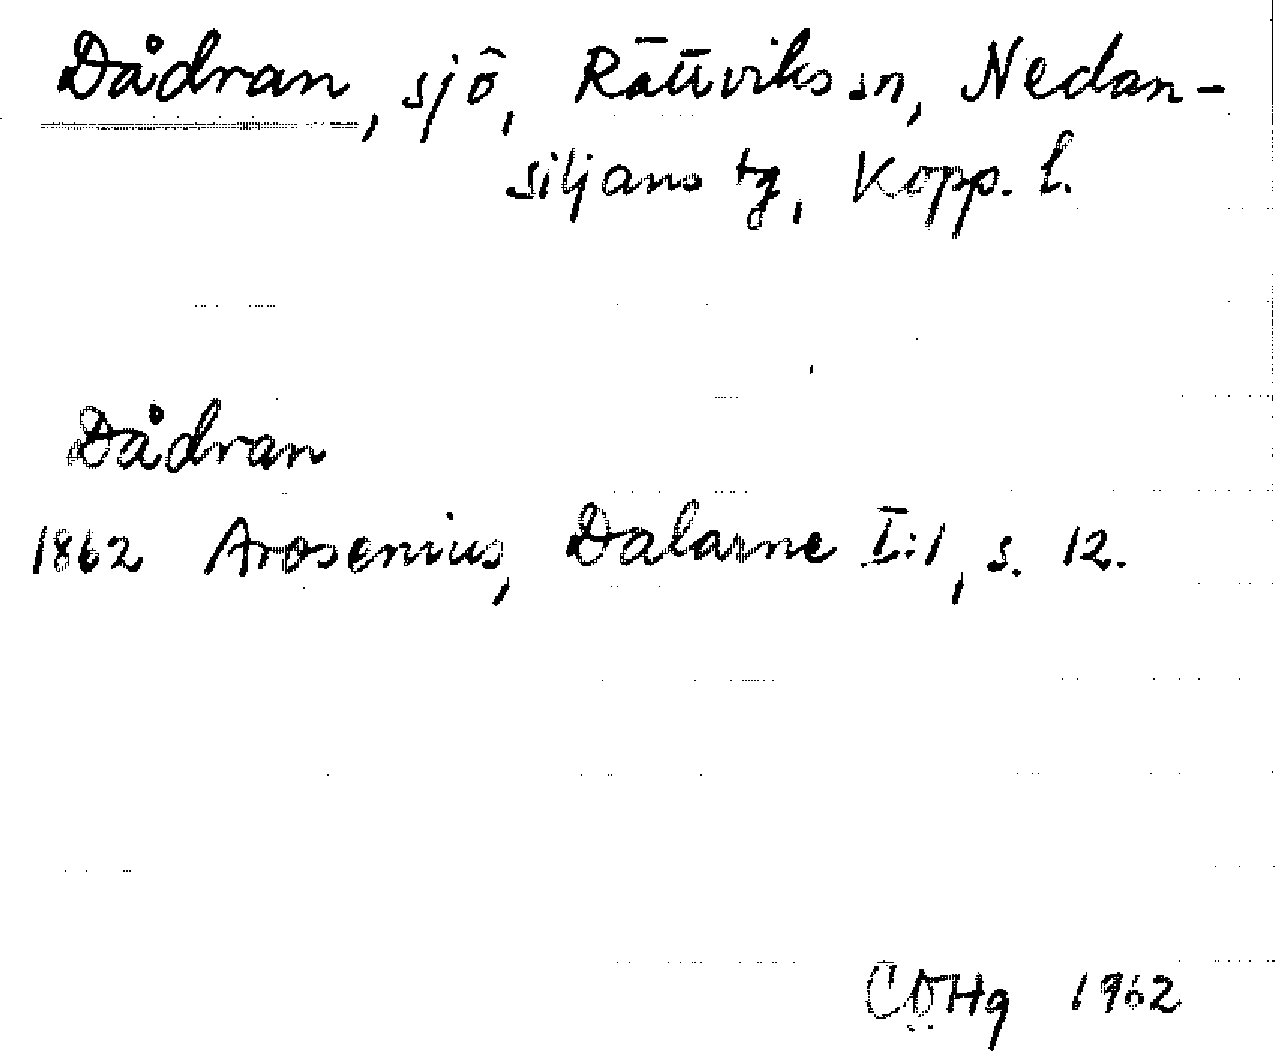 Dådran, sjö, Rättviks sn, Nedan-
siljans tg, Kopp. l.
Dådran
1862 Arosenius, Dalarne I:1, s. 12.
CÖHg 1962